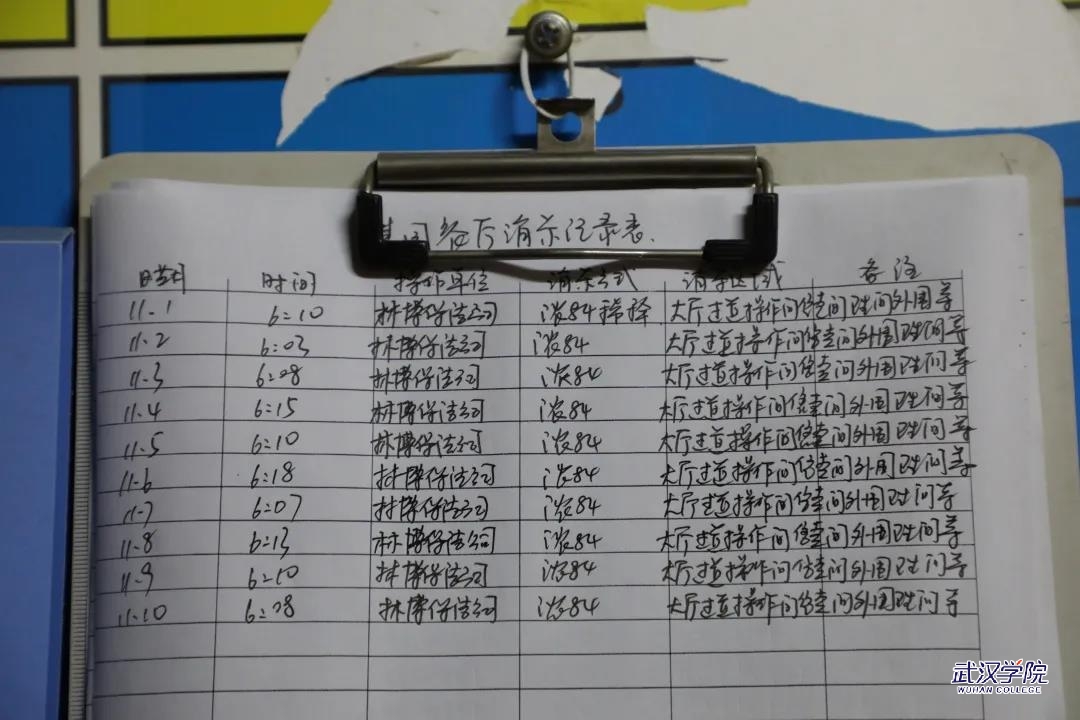 餐厅消杀记录表
日期 时间 操作单位 消杀方式 消杀区域 备注
11.1 6:10 林博保洁公司 浓84稀释 大厅过道操作间储查间卫生间外围等
11.2 6:03 林博保洁公司 浓84 大厅过道操作间 间外围卫生间等
11.3 6:08 林博保洁公司 浓84 大厅过道操作间 间外围卫生间等
11.4 6:15 林博保洁公司 浓84 大厅过道操作间 间外围卫生间等
11.5 6:10 林博保洁公司 浓84 大厅过道操作间 间外围卫生间等
11.6 6:18 林博保洁公司 浓84 大厅过道操作间 间外围卫生间等
11.7 6:07 林博保洁公司 浓84 大厅过道操作间 间外围卫生间等
11.8 6:13 林博保洁公司 浓84 大厅过道操作间 间外围卫生间等
11.9 6:10 林博保洁公司 浓84 大厅过道操作间 间外围卫生间等
11.10 6:08 林博保洁公司 浓84 大厅过道操作间 间外围卫生间等
武汉学院
WUHAN COLLEGE